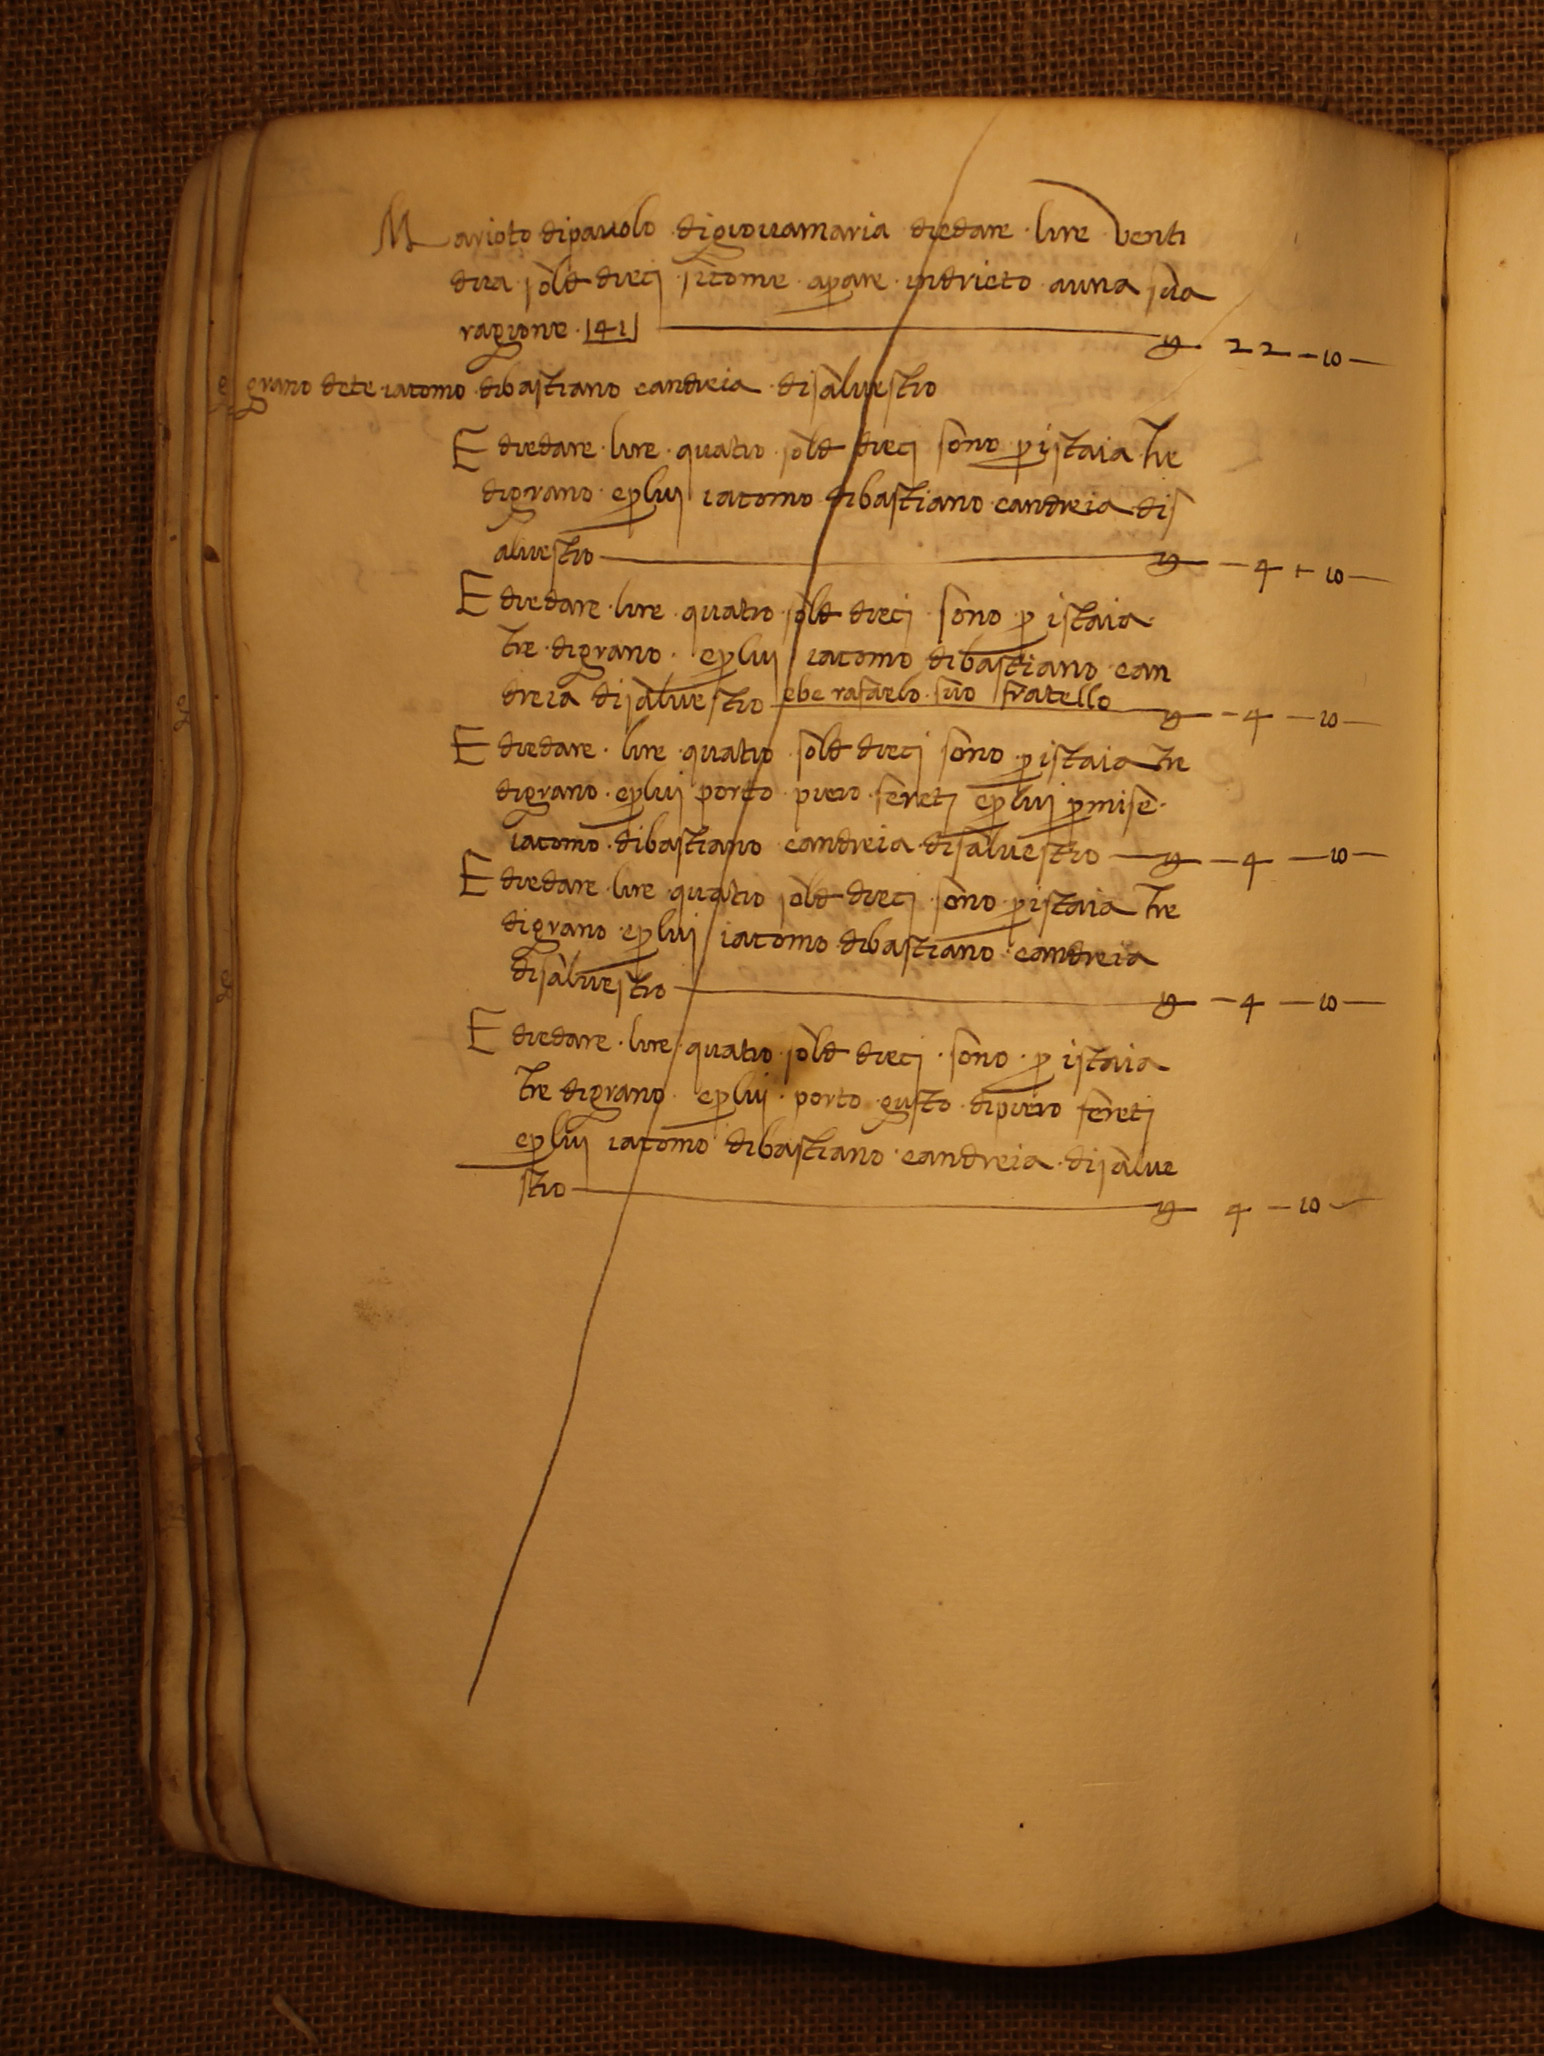 Marioto dipavolo digiovamaria diedare lire venti
dua sold dieci sicome apare indrieto auna sua
ragione 141 — 22 — 10 —
grano dete iacomo dibastiano eandreia disalvestro
E diedare lire quatro sold dieci sono p istaia tre
digrano eplui iacomo dibastiano eandreia dis
alvestro — 4 — 10 —
E diedare lire quatro sold dieci sono p istaia
tre digrano eplui iacomo dibastiano ean
dreia disalvestro ebe rafaelo suo fratello — 4 — 10 —
E diedare lire quatro sold dieci sono p istaia tre
digrano eplui porto piero fereti eplui pmise
iacomo dibastiano eandreia disalvestro — 4 — 10 —
E diedare lire quatro sold dieci sono p istaia tre
digrano eplui iacomo dibastiano eandreia
disalvestro — 4 — 10 —
E diedare lire quatro sold dieci sono p istaia
tre digrano eplui porto gusto dipiero fereti
eplui iacomo dibastiano eandreia disalve
stro — 4 — 10